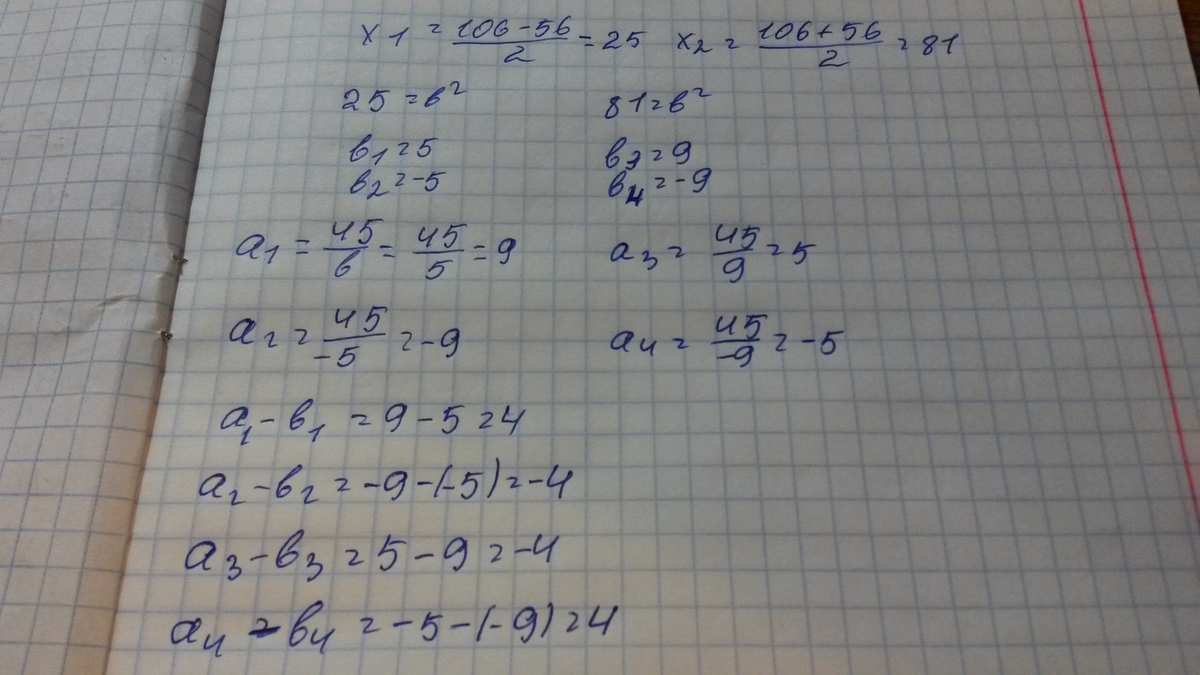 x1 = (106-56)/2 = 25   x2 = (106+56)/2 = 81
25 = в²   81 = в²
в1 = 5   в3 = 9
в2 = -5   в4 = -9
a1 = 45/в = 45/5 = 9   a3 = 45/9 = 5
a2 = 45/-5 = -9   a4 = 45/-9 = -5
a1 - в1 = 9 - 5 = 4
a2 - в2 = -9 - (-5) = -4
a3 - в3 = 5 - 9 = -4
a4 - в4 = -5 - (-9) = 4